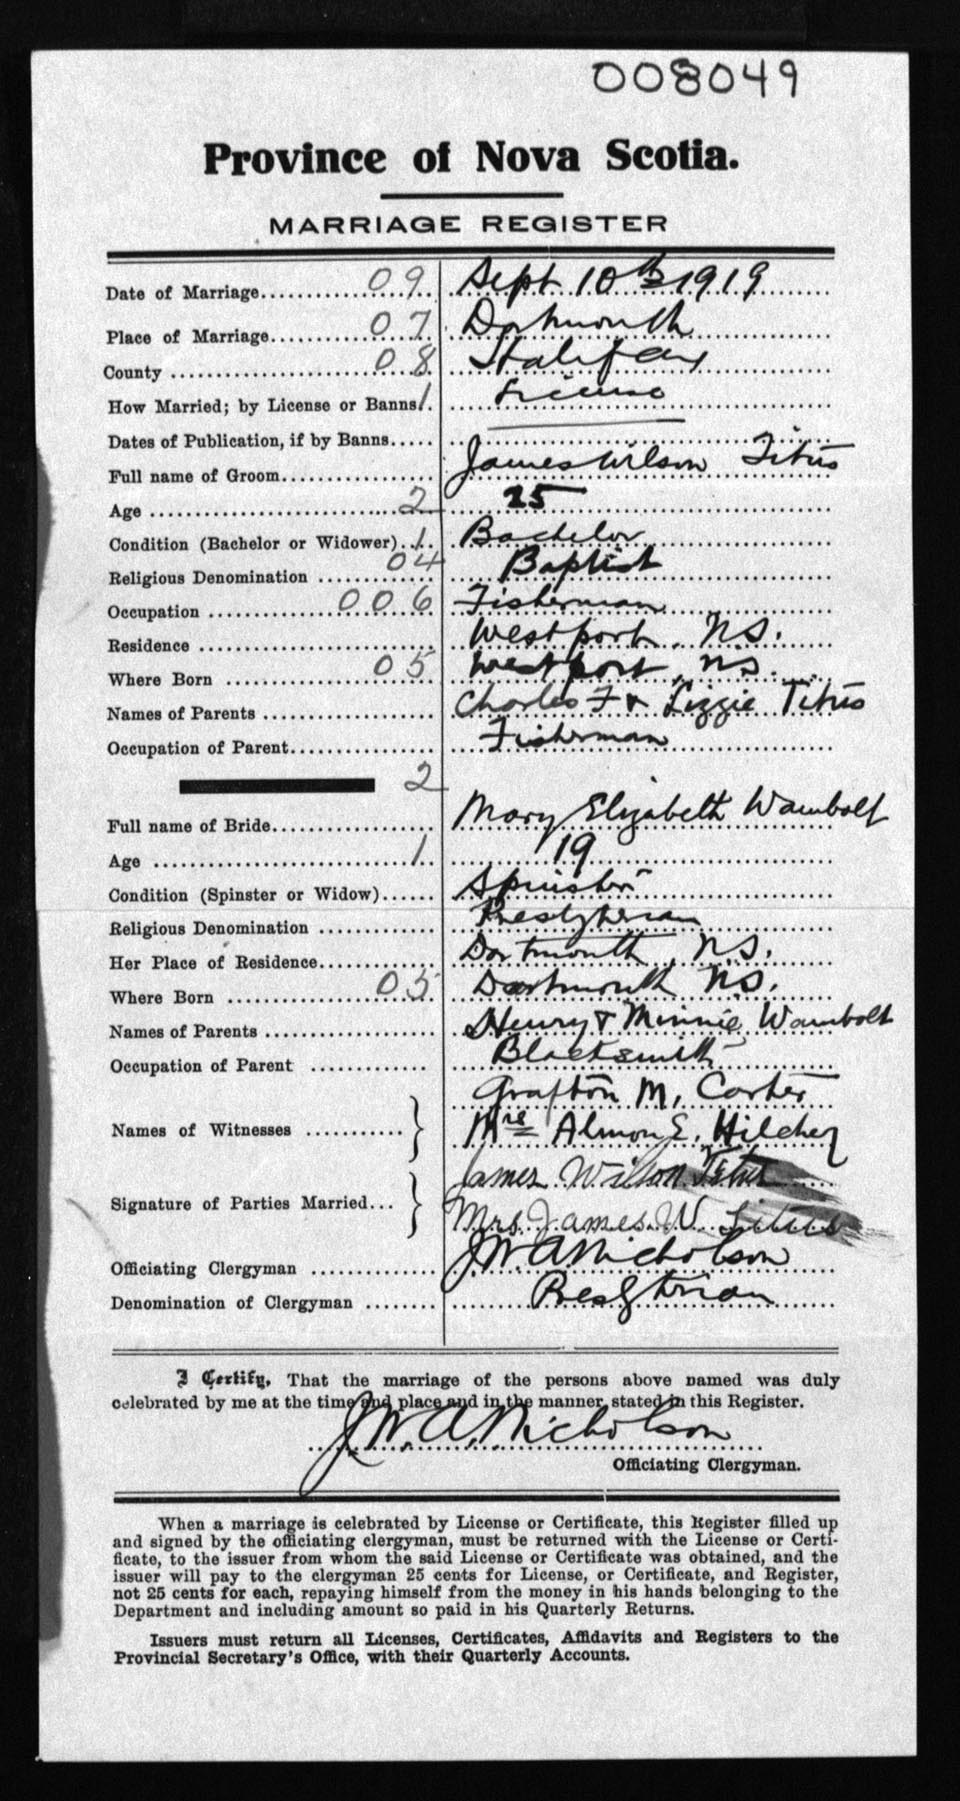 008049
Province of Nova Scotia.
MARRIAGE REGISTER
Date of Marriage 09 Sept 10th 1919
Place of Marriage 07 Dartmouth
County 08 Halifax
How Married; by License or Banns 1 License
Dates of Publication, if by Banns
Full name of Groom James Wilson Titus
Age 2 25
Condition (Bachelor or Widower) 1 Bachelor
Religious Denomination 04 Baptist
Occupation 006 Fisherman
Residence Westport, N.S.
Where Born 05 Westport, N.S.
Names of Parents Charles F & Lizzie Titus
Occupation of Parent Fisherman
2
Full name of Bride Mary Elizabeth Wambolt
Age 1 19
Condition (Spinster or Widow) Spinster
Religious Denomination Presbyterian
Her Place of Residence Dartmouth, N.S.
Where Born 05 Dartmouth N.S.
Names of Parents Henry & Minnie Wambolt
Occupation of Parent Blacksmith
Grafton M. Carter
Names of Witnesses Mrs Almon E. Hilchey
James Wilson Titus
Signature of Parties Married Mrs James W Titus
Officiating Clergyman J.W.A. Nicholson
Denomination of Clergyman Presbyterian
I Certify, That the marriage of the persons above named was duly
celebrated by me at the time and place and in the manner stated in this Register.
J.W.A. Nicholson
Officiating Clergyman.
When a marriage is celebrated by License or Certificate, this Register filled up
and signed by the officiating clergyman, must be returned with the License or Certi-
ficate, to the issuer from whom the said License or Certificate was obtained, and the
issuer will pay to the clergyman 25 cents for License, or Certificate, and Register,
not 25 cents for each, repaying himself from the money in his hands belonging to the
Department and including amount so paid in his Quarterly Returns.
Issuers must return all Licenses, Certificates, Affidavits and Registers to the
Provincial Secretary's Office, with their Quarterly Accounts.